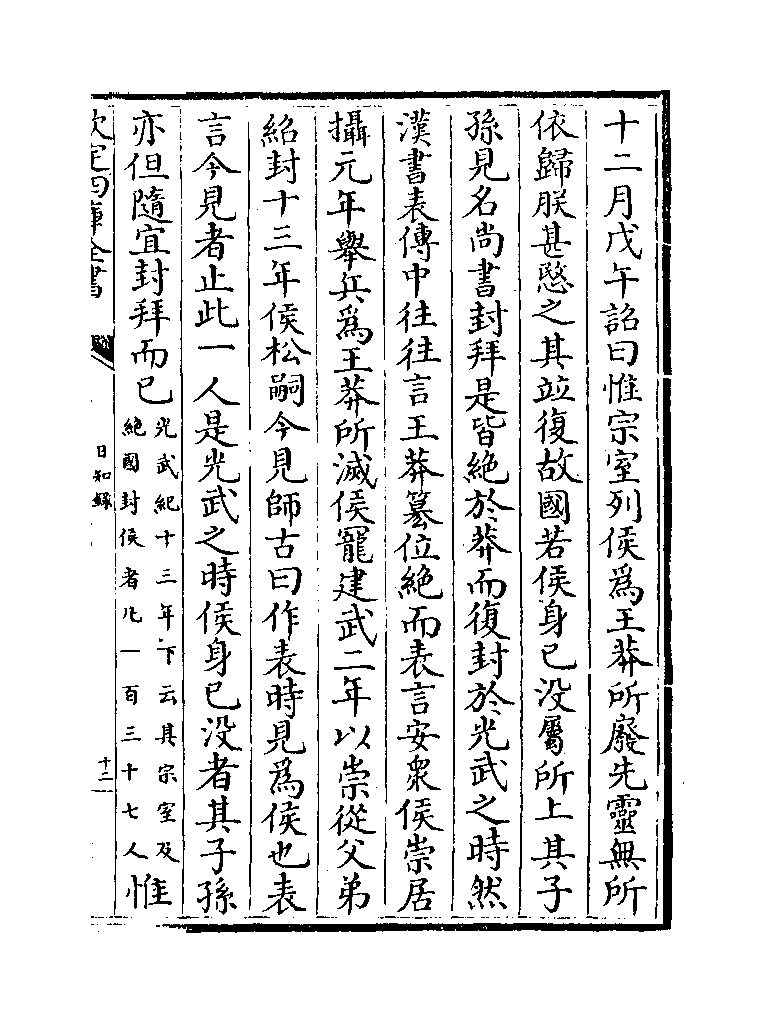 十二月戊午詔曰惟宗室列侯爲王莽所廢先靈無所
依歸朕甚愍之其竝復故國若侯身已没屬所上其子
孫見名尚書封拜是皆絶於莽而復封於光武之時然
漢書表傳中往往言王莽簒位絶而表言安衆侯崇居
攝元年舉兵爲王莽所滅侯寵建武二年以崇從父弟
紹封十三年侯松嗣今見師古曰作表時見爲侯也表
言今見者止此一人是光武之時侯身已没者其子孫
亦但隨宜封拜而已光武紀十三年下云其宗室及絶國封侯者凡一百三十七人惟
欽定四庫全書
日知録
十二